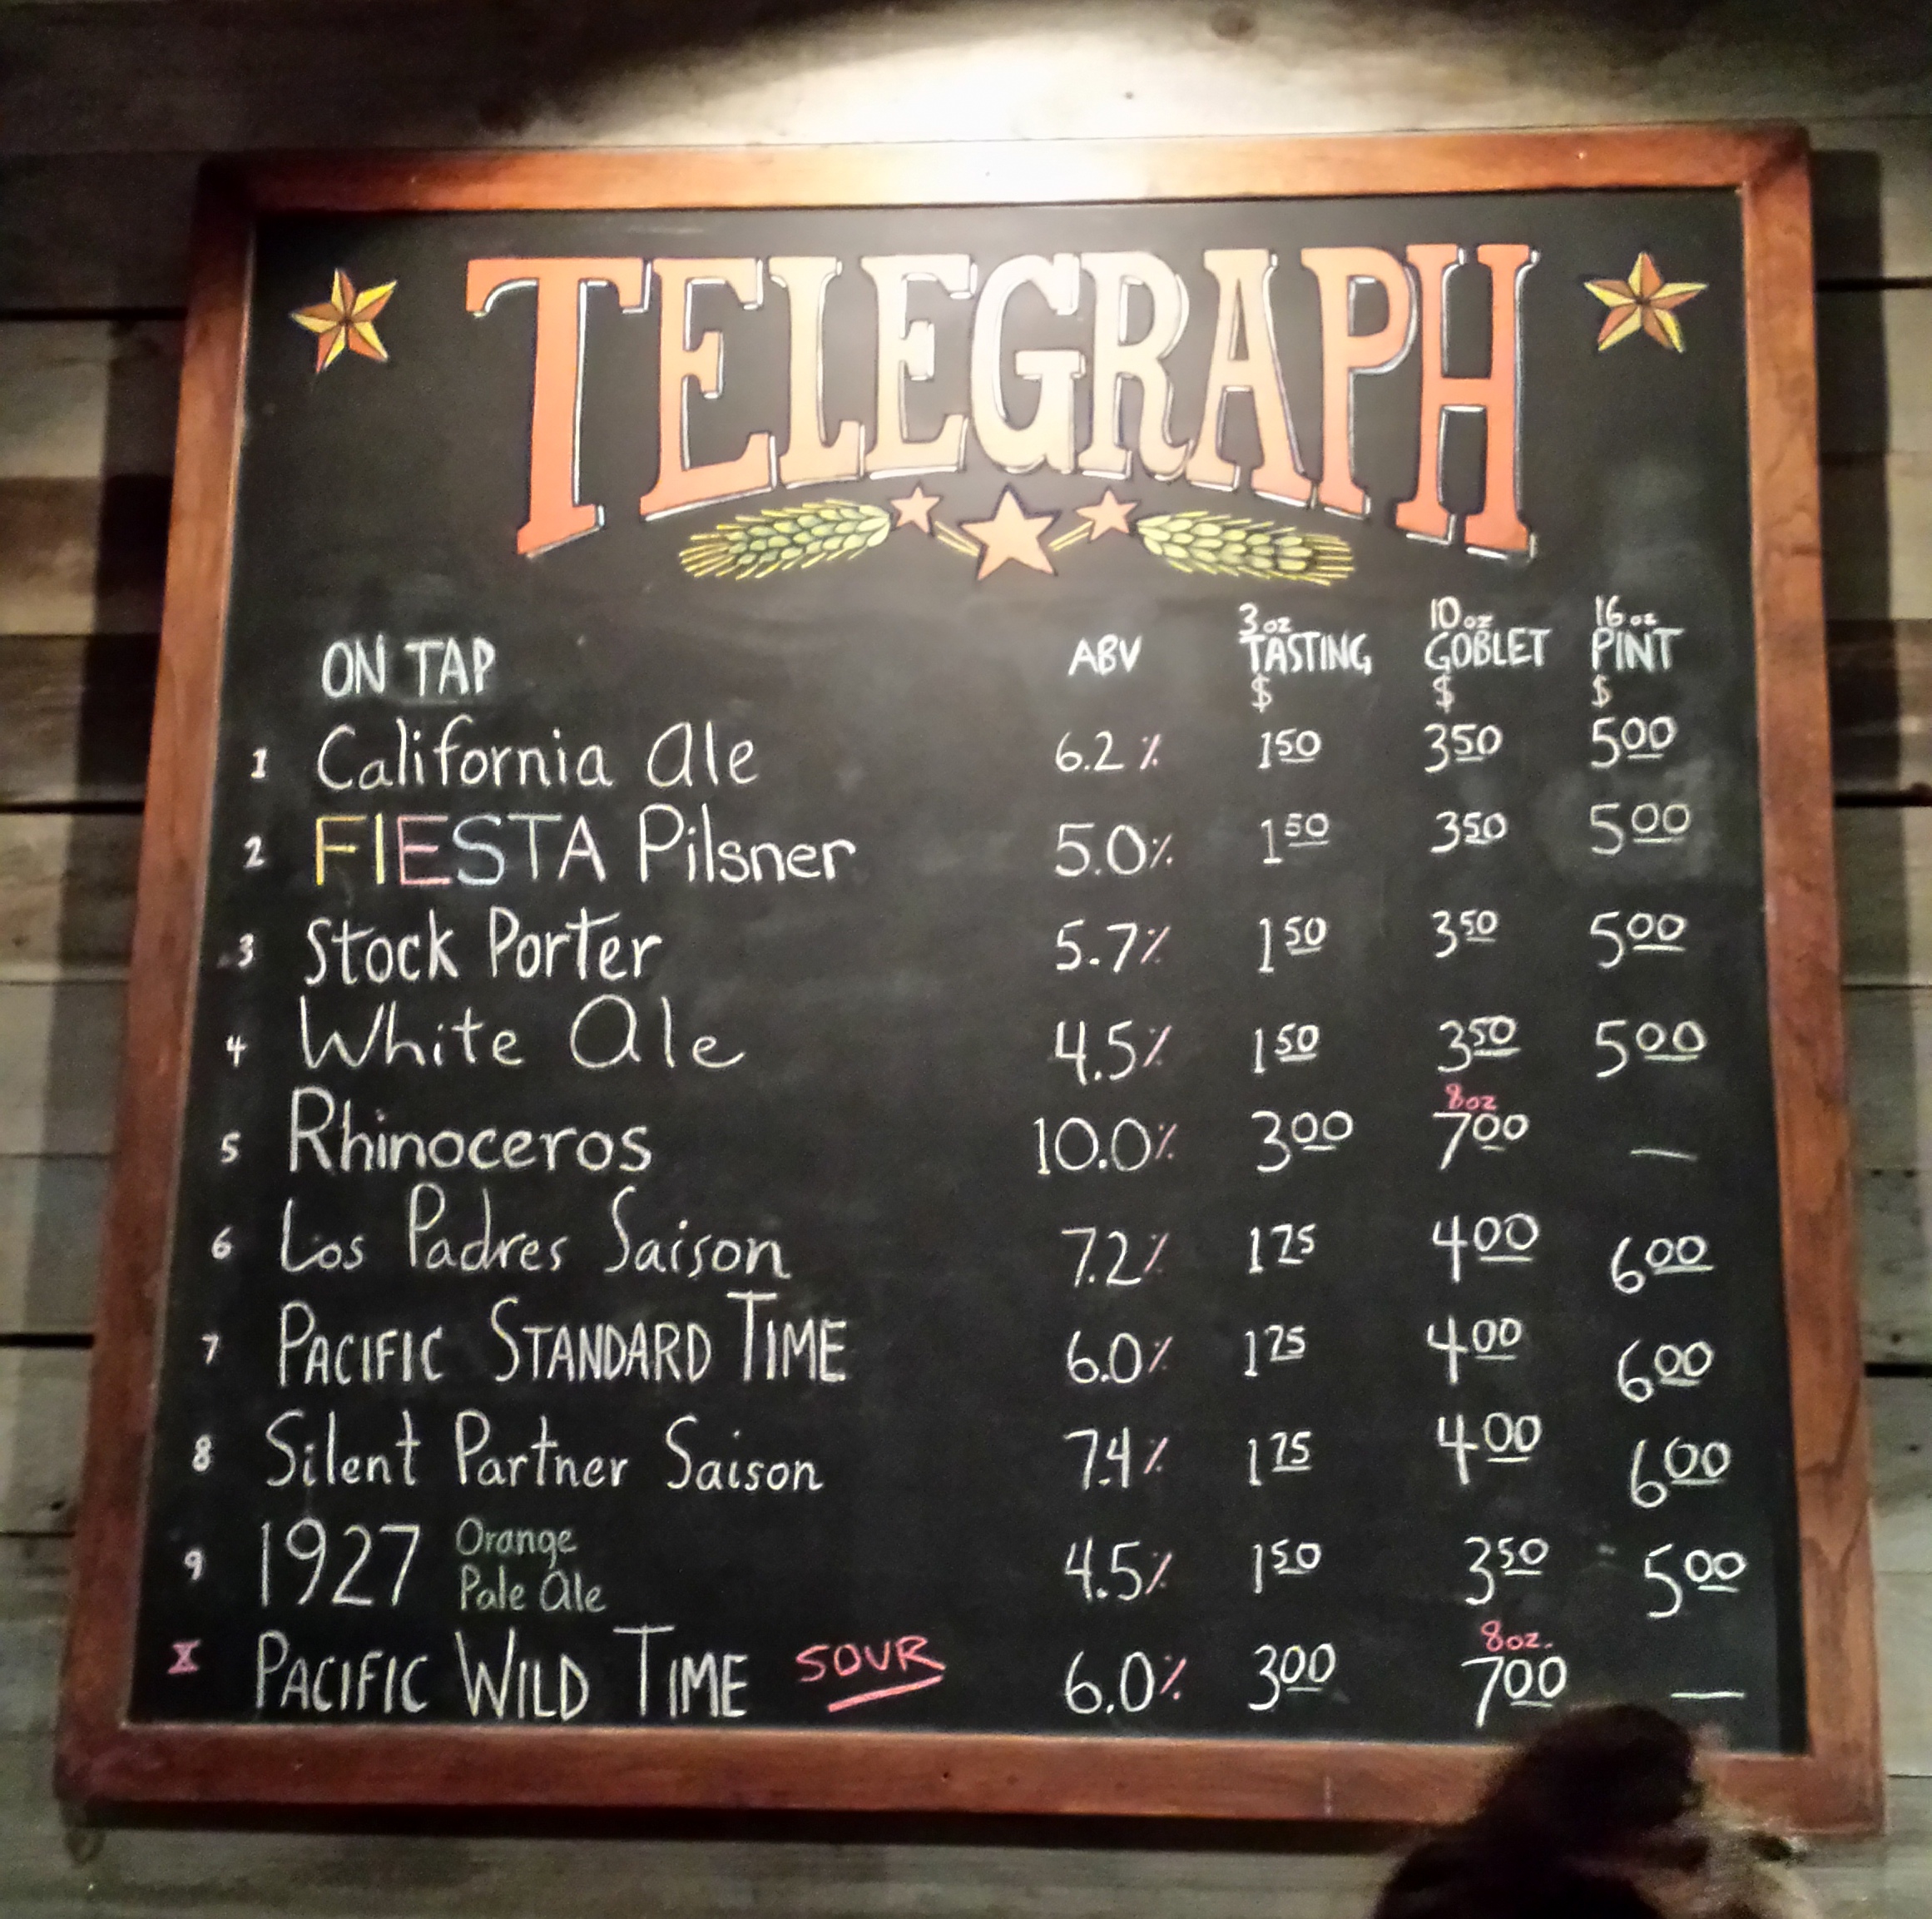 TELEGRAPH
3 oz 10 oz 16 oz
ON TAP ABV TASTING GOBLET PINT
$ $ $
1 California Ale 6.2% 1 50 3 50 5 00
2 FIESTA Pilsner 5.0% 1 50 3 50 5 00
3 Stock Porter 5.7% 1 50 3 50 5 00
4 White Ale 4.5% 1 50 3 50 5 00
8oz
5 Rhinoceros 10.0% 3 00 7 00 —
6 Los Padres Saison 7.2% 1 75 4 00 6 00
7 PACIFIC STANDARD TIME 6.0% 1 75 4 00 6 00
8 Silent Partner Saison 7.4% 1 75 4 00 6 00
9 1927 Orange Pale Ale 4.5% 1 50 3 50 5 00
8oz.
X PACIFIC WILD TIME SOUR 6.0% 3 00 7 00 —